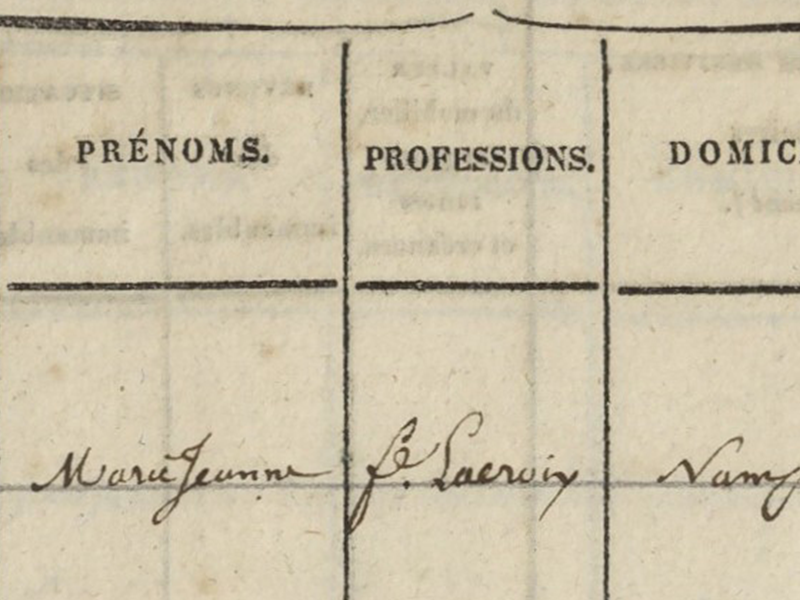 PRÉNOMS. PROFESSIONS. DOMIC
Marie Jeanne fe. Lacroix Namps